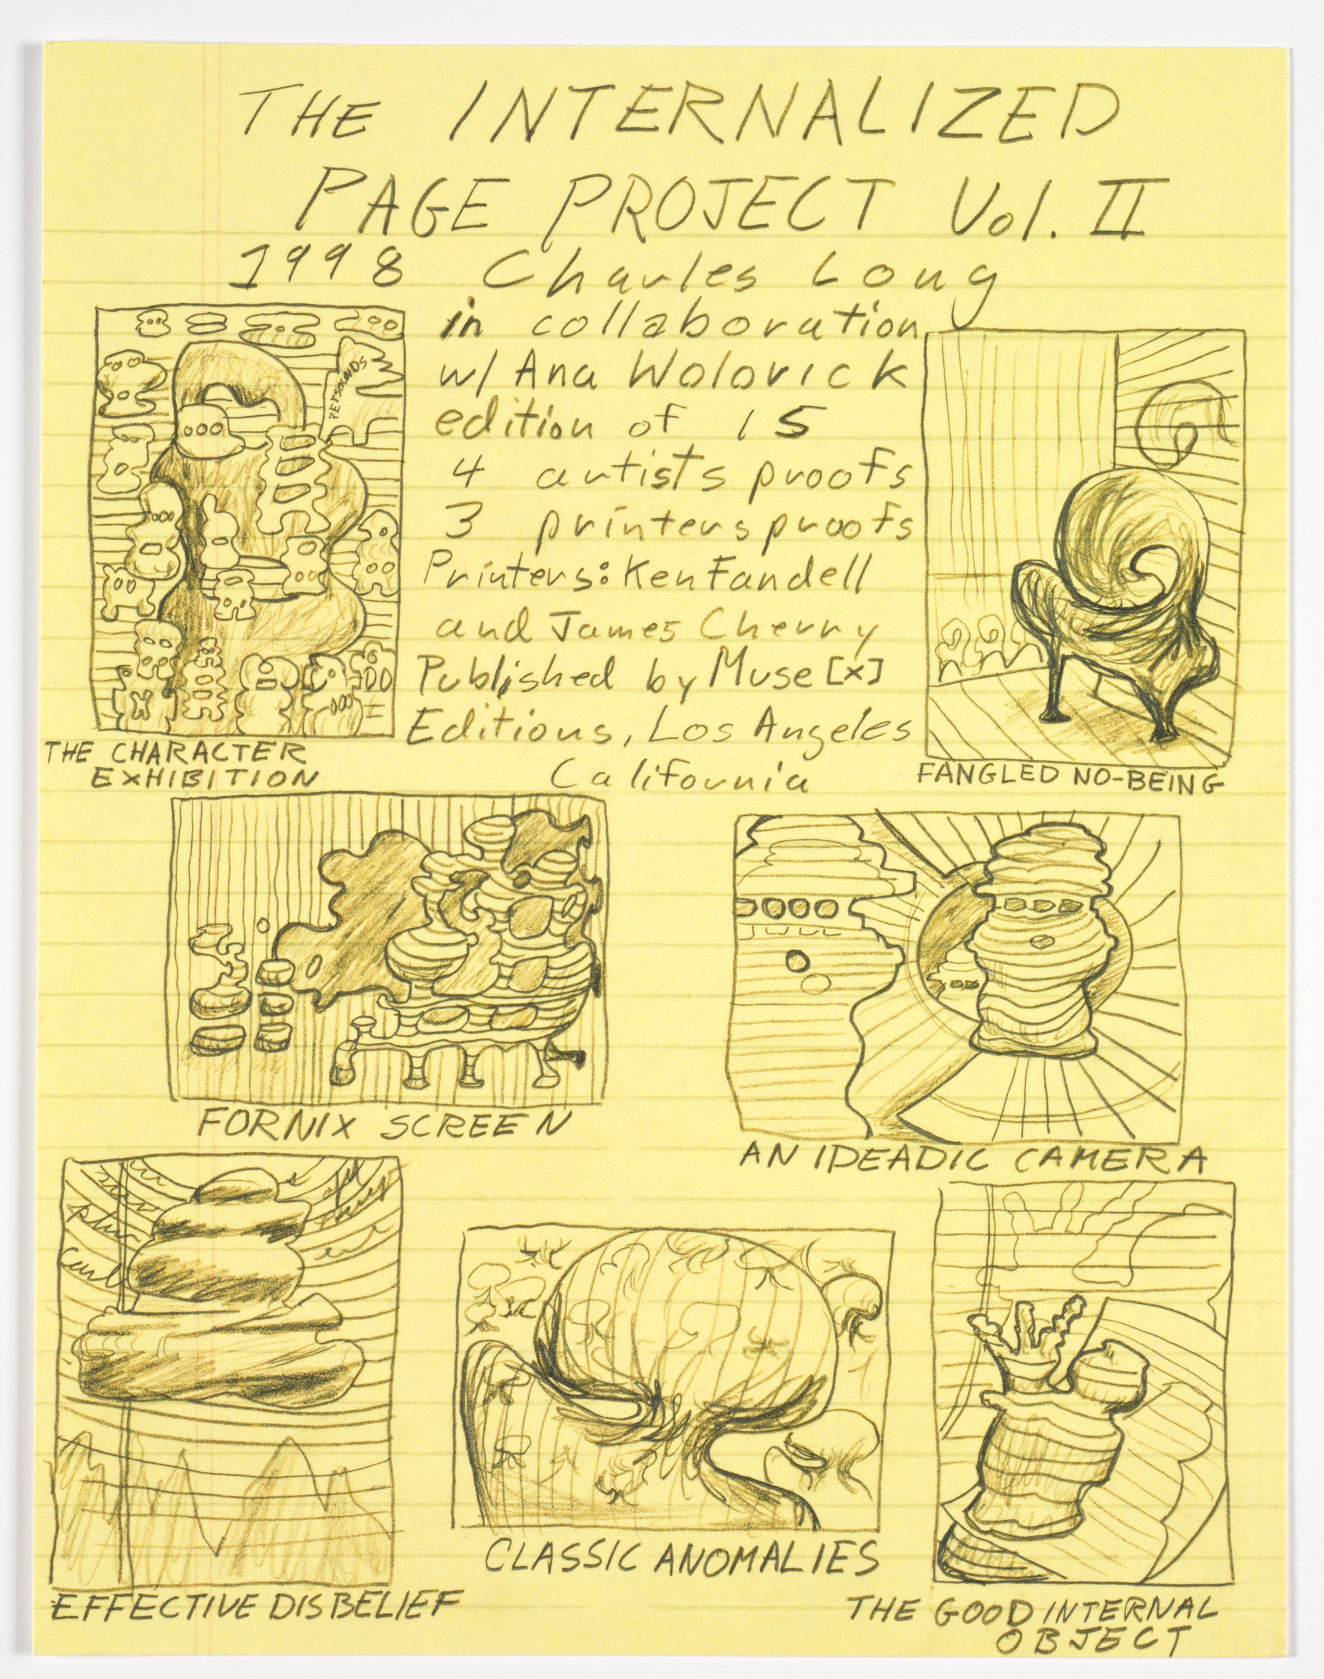 THE INTERNALIZED
PAGE PROJECT Vol. II
1998 Charles Long
in collaboration
w/ Ana Wolovick
edition of 15
4 artists proofs
3 printers proofs
Printers: Ken Fandell
and James Cherry
Published by Muse [x]
Editions, Los Angeles
California
PETSOUNDS
THE CHARACTER
EXHIBITION
FANGLED NO-BEING
FORNIX SCREEN
AN IDEADIC CAMERA
EFFECTIVE DISBELIEF
CLASSIC ANOMALIES
THE GOOD INTERNAL
OBJECT